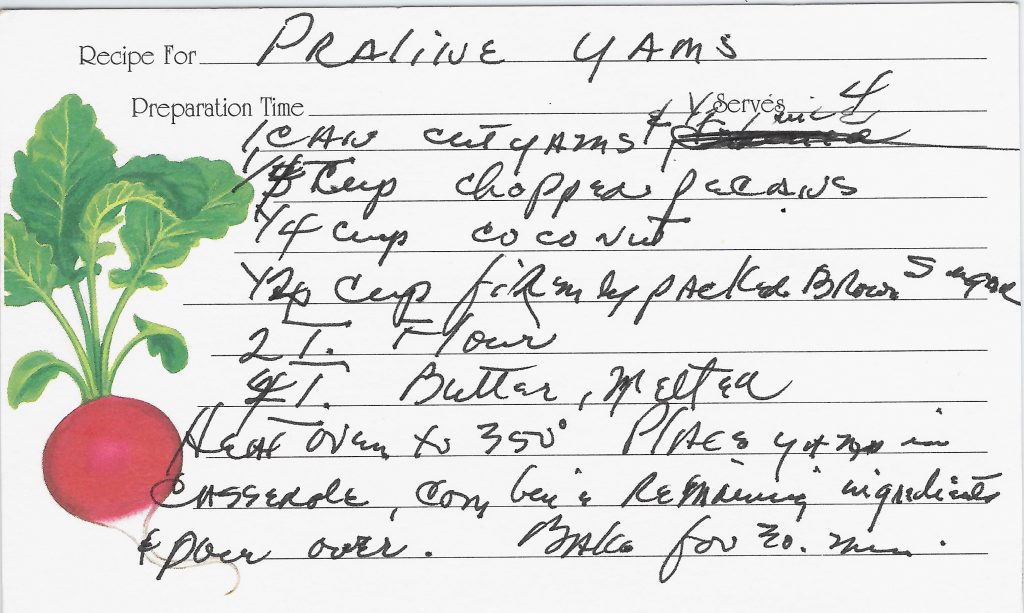 Recipe For PRALINE YAMS
Preparation Time Serves 4
1 CAN cut YAMS &
cup chopped pecans
1/4 cup coconut
1/2 cup firmly packed Brown Sugar
2 T. Flour
4 T. Butter, Melted
Heat oven to 350° Place yams in
casserole, combine Remaining ingredients
& pour over. Bake for 30. min.